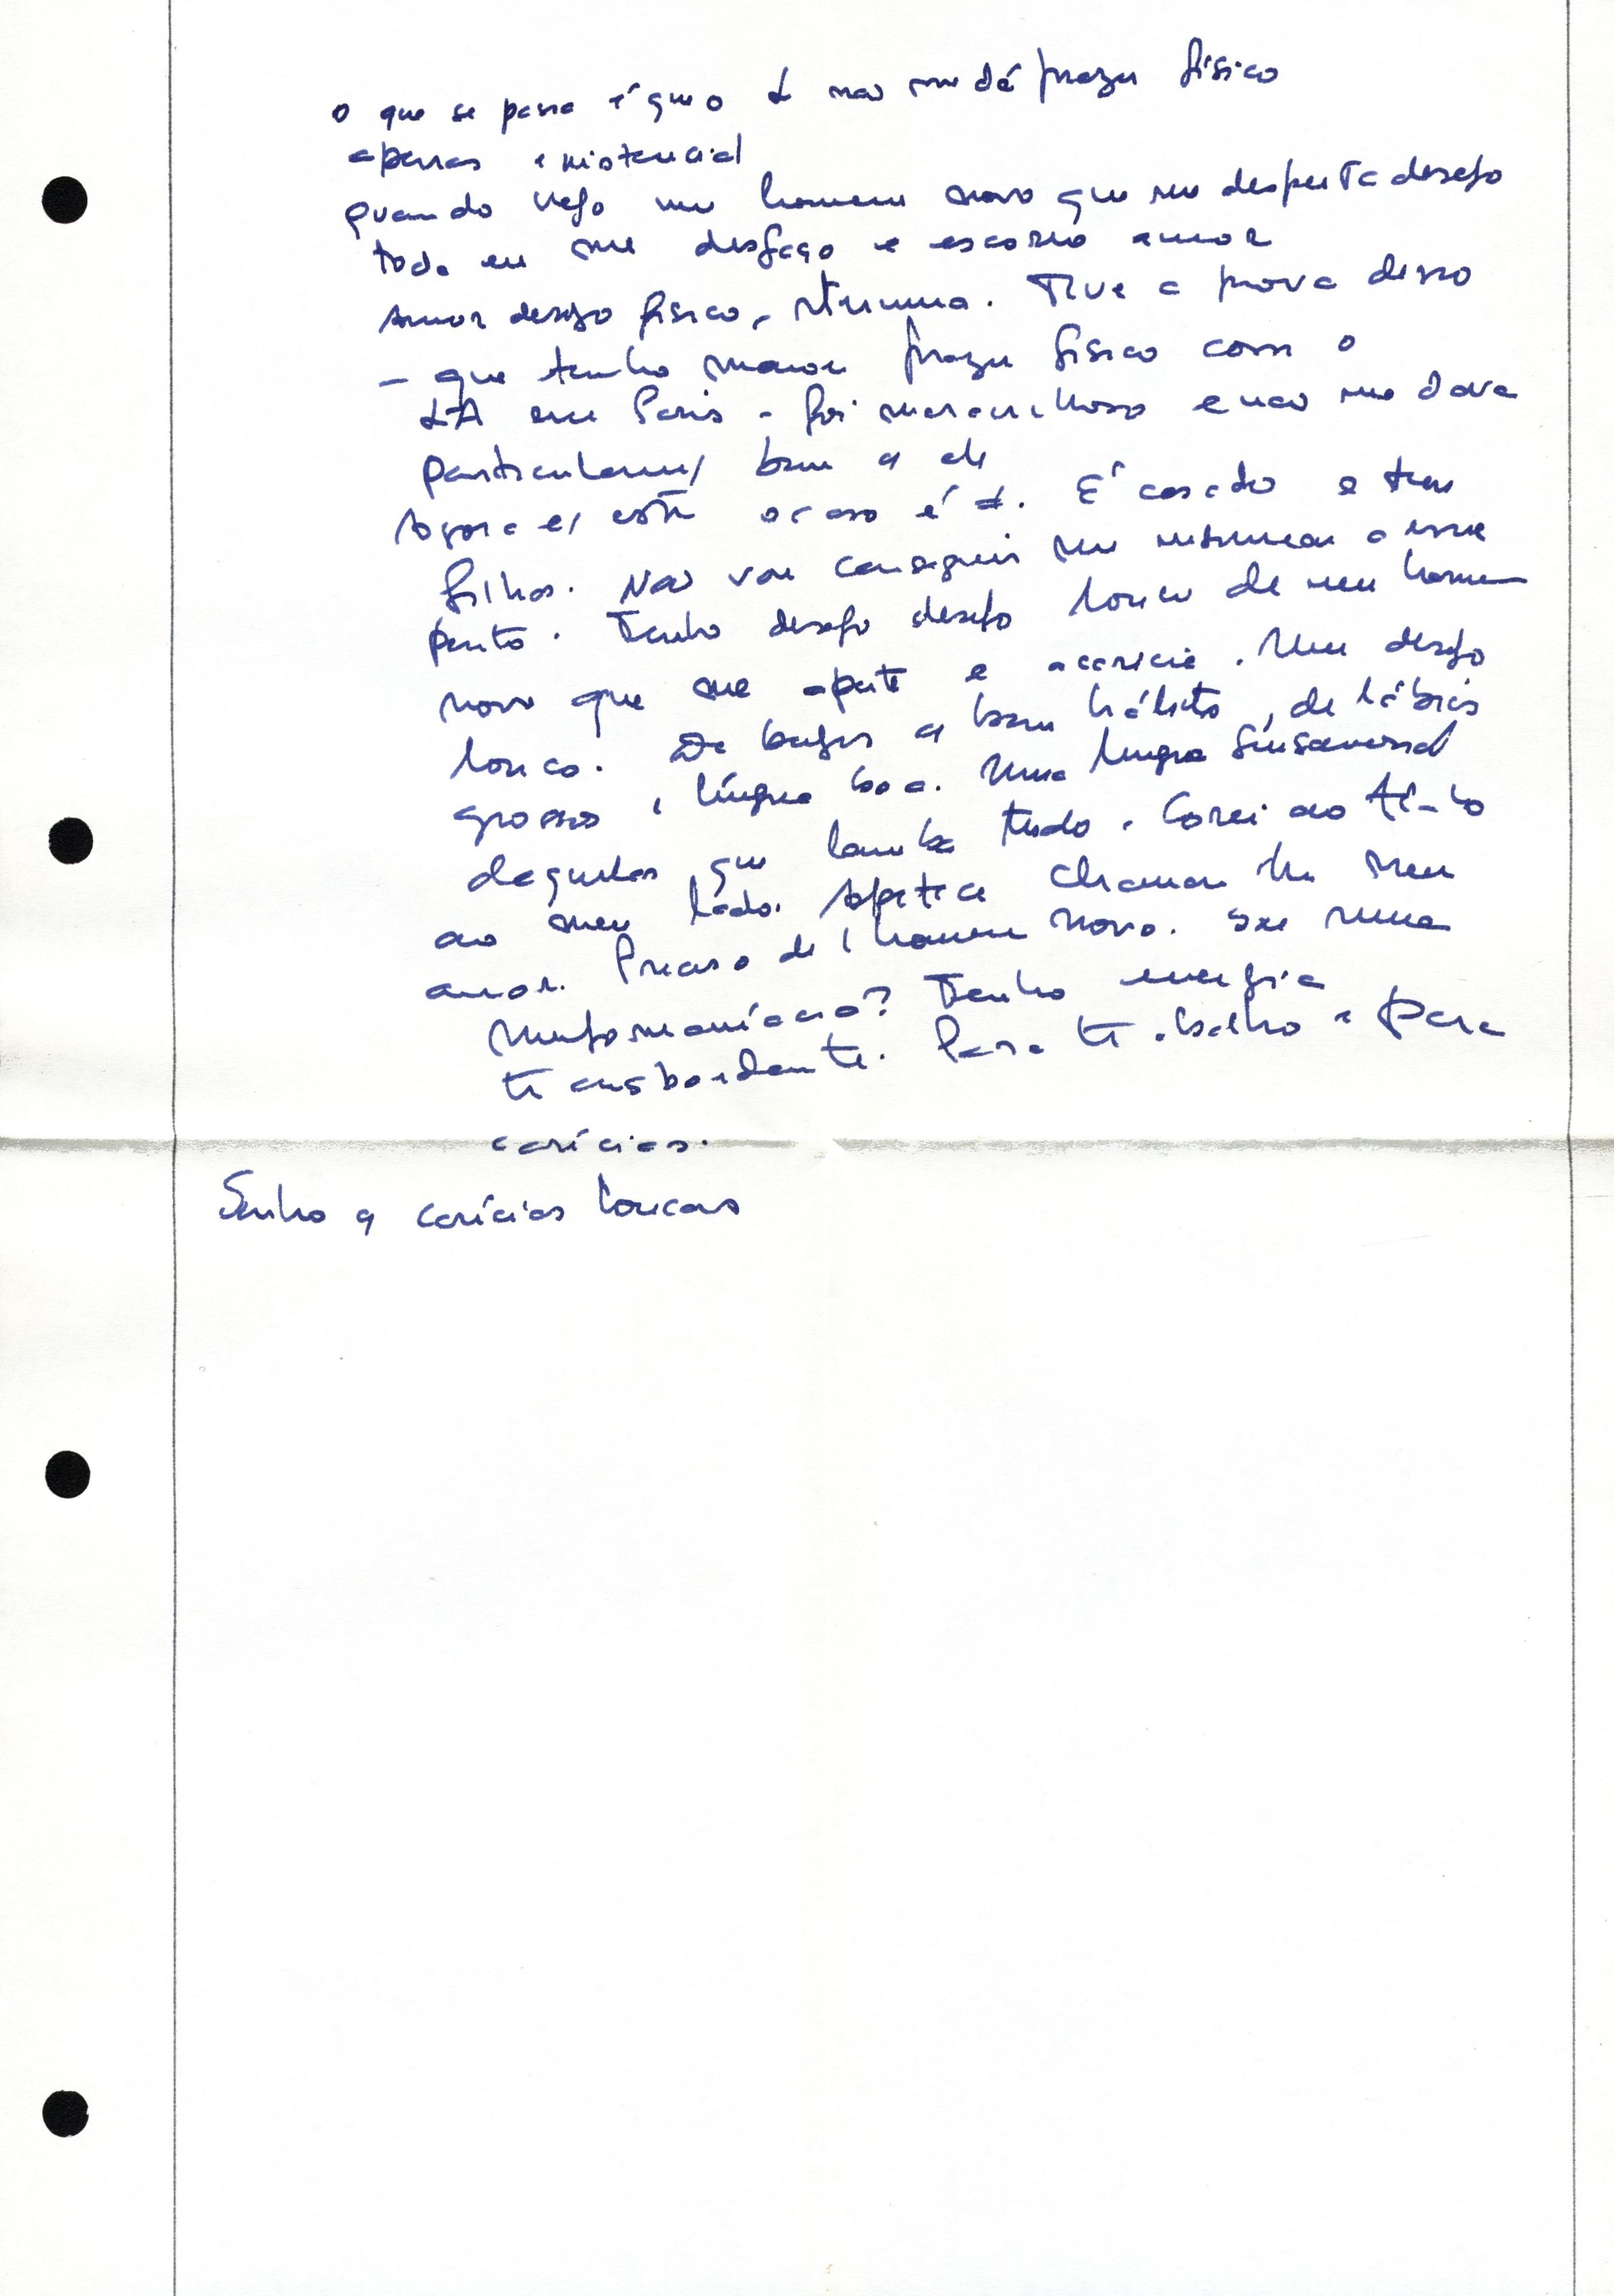 O que se passa é que o L não me dá prazer físico
apenas existencial
quando vejo um homem novo que me desperta desejo
toda eu me desfaço e escorro amor
Amor desejo físico, . Tive a prova disso
– que tenho maior prazer físico com o
LA em Paris – foi maravilhoso e não me dava
particularm/ bem c/ ele
Agora c/ este o caso é ≠. É casado e tem
filhos. Não vou conseguir me a esse
ponto. Tenho desejo desejo louco de um homem
novo que me aperte e acaricie. Um desejo
louco. De beijos c/ bom hálito, de lábios
grossos, língua boa. Uma língua
daquelas que lambe tudo. Corei ao tê-lo
ao meu lado. Apetece chamar lhe meu
amor. Preciso de 1 homem novo. Sou uma
ninfomaníaca? Tenho energia
transbordante. Para trabalho e para
carícias.
Sonho c/ carícias loucas